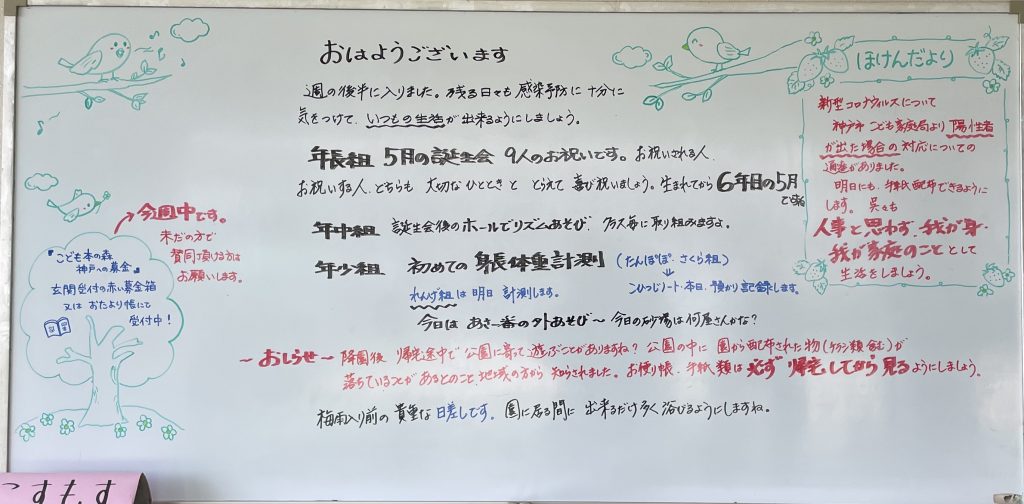 おはようございます
週の後半に入りました。残る日々も感染予防に十分に
気をつけて、いつもの生活が出来るようにしましょう。
年長組 5月の誕生会 9人のお祝いです。お祝いされる人、
お祝いする人、どちらも 大切なひとときと とらえて 喜び祝いましょう。生まれてから6年目の5月
ですね
年中組 誕生会後のホールでリズムあそび、クラス毎に取り組みますよ。
年少組 初めての身長体重計測 (たんぽぽ・さくら組)
れんげ組は明日 計測します。
こひつじノート・本日、預かり記録します。
今日は あさ一番の外あそび〜 今日の砂場は何屋さんかな?
〜おしらせ〜 降園後 帰宅途中で公園に寄って遊ぶことがありますね? 公園の中に 園から配布された物(チラシ類含む)が
落ちていることがあるとのこと 地域の方から 知らされました。お便り帳、手紙類は必ず帰宅してから見るようにしましょう。
梅雨入り前の貴重な日差しです。園に居る間に 出来るだけ多く浴びるようにしますね。
ほけんだより
新型コロナウィルスについて
神戸市 こども家庭局より 陽性者
が出た場合の対応についての
通達がありました。
明日にも、手紙配布できるように
します。呉々も
人事と思わず、我が身・
我が家庭のこととして
生活をしましょう。
今週中です。
未だの方で
賛同頂ける方は
お願いします。
『こども本の森
神戸への募金』
玄関受付の赤い募金箱
又は おたより帳にて
受付中!
こすもす